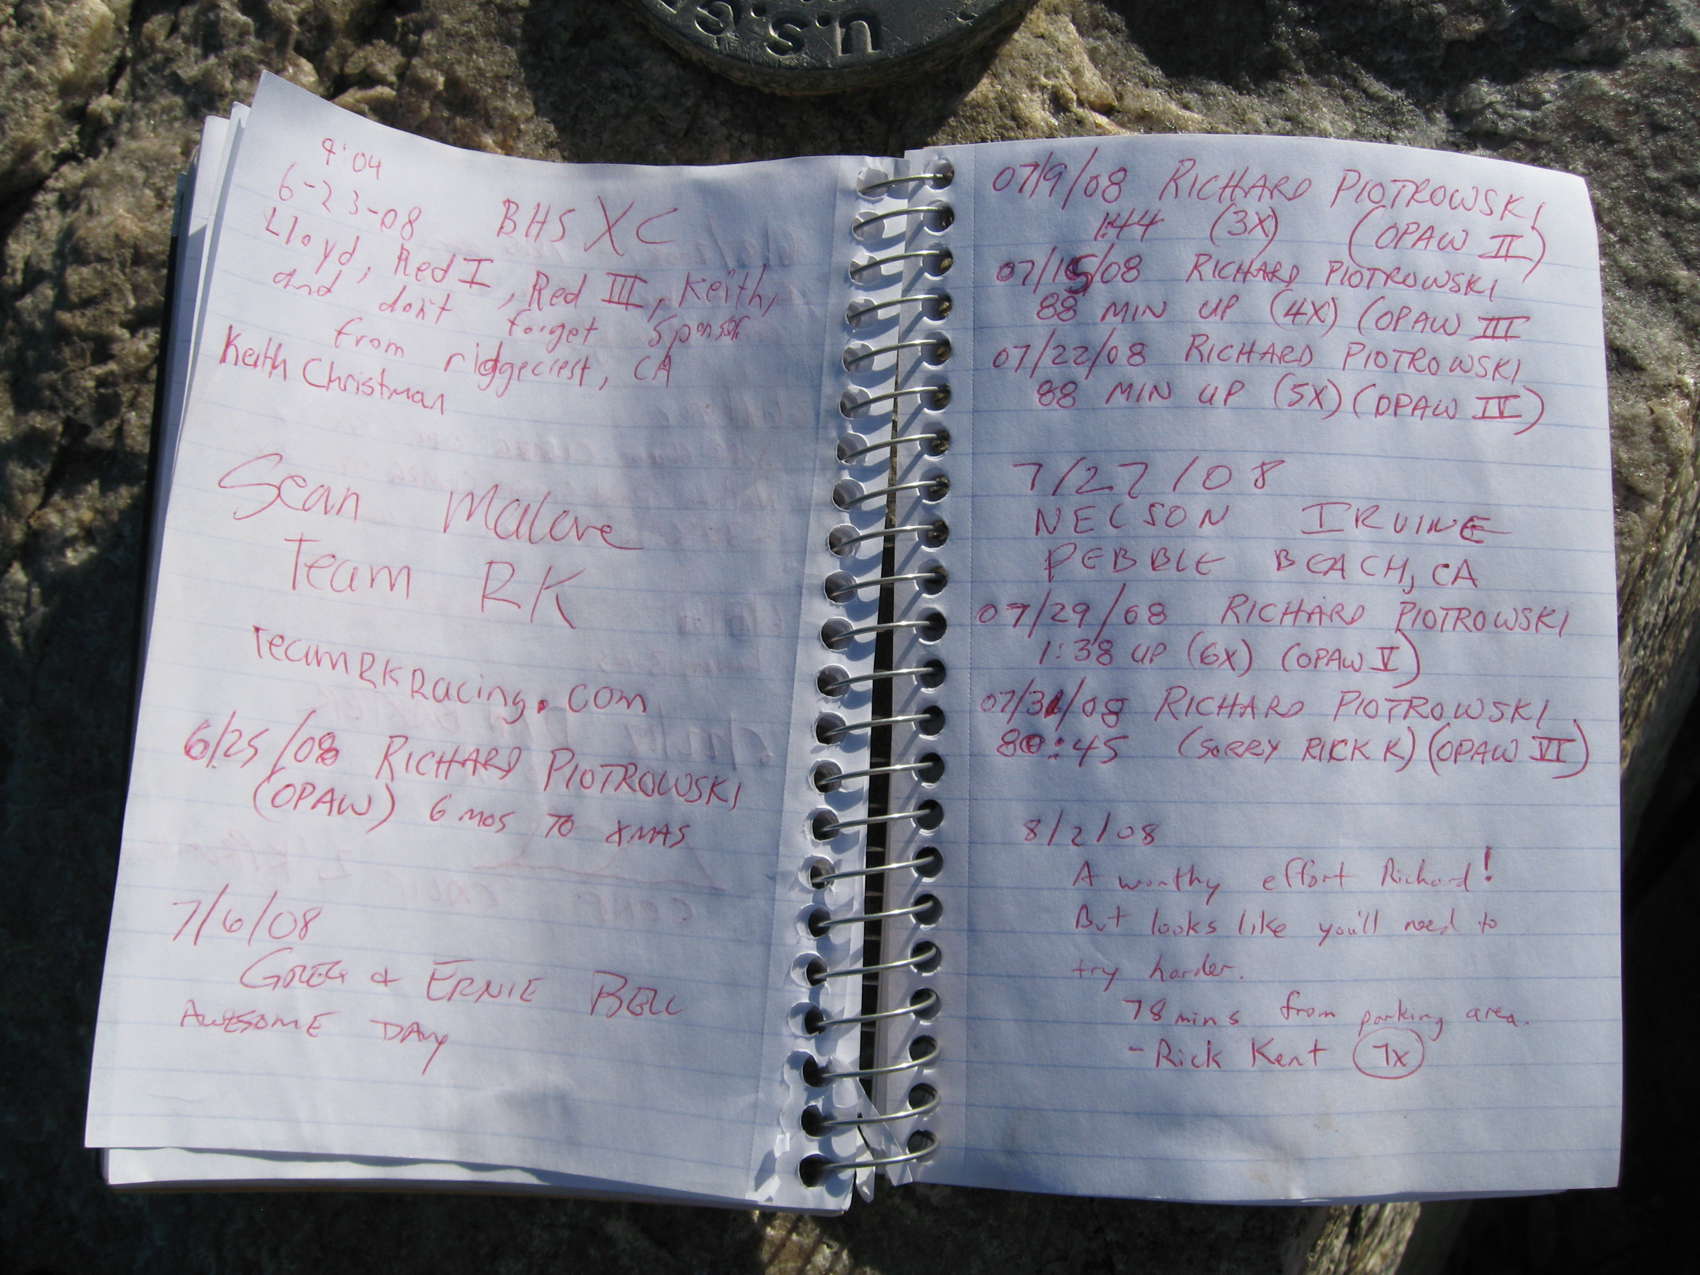 U.S.
9:04
6-23-08 BHS XC
Lloyd, Red I, Red III, Keith,
and don't forget Sponsor
from ridgecrest, CA
Keith Christman
Sean Malone
Team RK
TeamRKRacing.com
6/25/08 RICHARD PIOTROWSKI
(OPAW) 6 MOS TO XMAS
7/6/08
GREG & ERNIE BELL
AWESOME DAY
07/9/08 RICHARD PIOTROWSKI
1:44 (3X) (OPAW II)
07/15/08 RICHARD PIOTROWSKI
88 MIN UP (4X) (OPAW III
07/22/08 RICHARD PIOTROWSKI
88 MIN UP (5X) (OPAW IV)
7/27/08
NELSON IRVINE
PEBBLE BEACH, CA
07/29/08 RICHARD PIOTROWSKI
1:38 UP (6X) (OPAW V)
07/31/08 RICHARD PIOTROWSKI
80:45 (SORRY RICK K) (OPAW VI)
8/2/08
A worthy effort Richard!
But looks like you'll need to
try harder.
78 mins from parking area.
- Rick Kent 7x